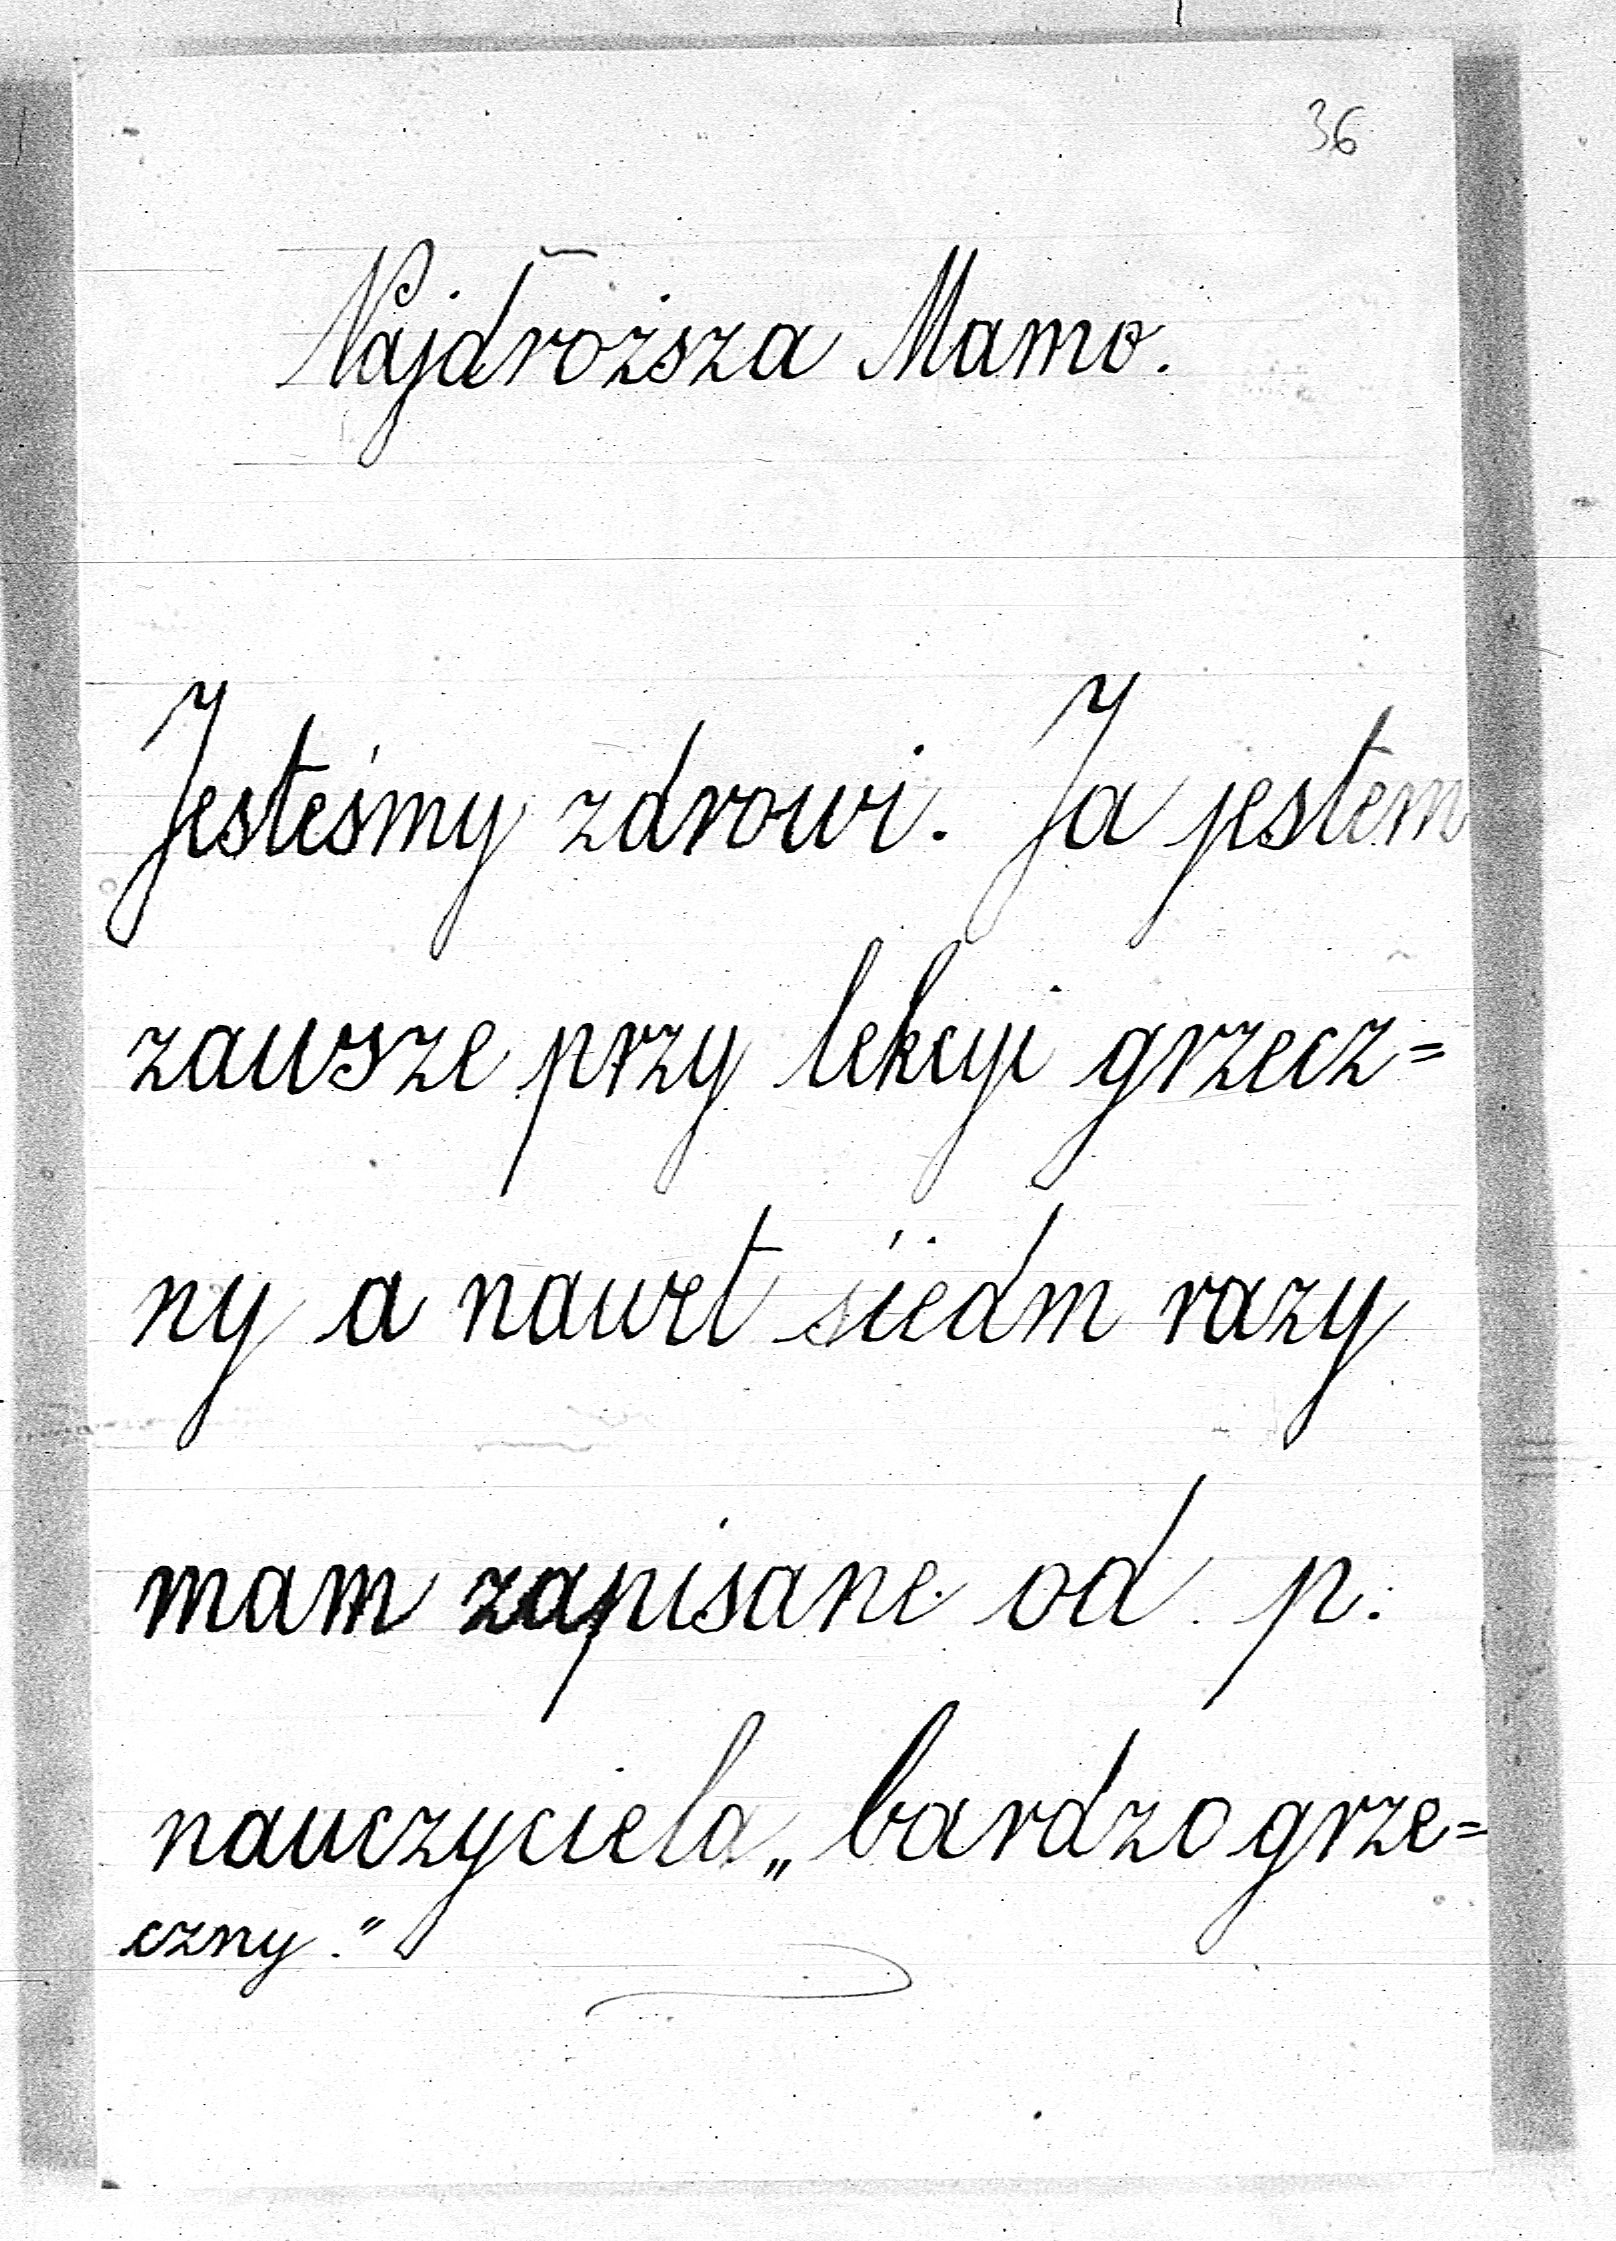 36
Najdroższa Mamo.
Jesteśmy zdrowi. Ja jestem
zawsze przy lekcyi grzecz=
ny a nawet śiedm razy
mam zapisane od p.
nauczyciela „bardzo grze=
czny."